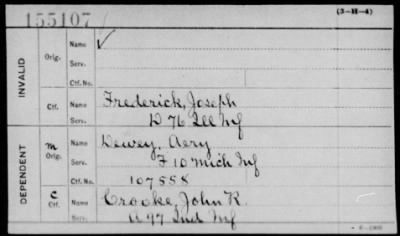 155107 (3-H-4)
INVALID
Orig. Name ✓
Serv.
Ctf. No.
Ctf. Name Frederick, Joseph
Serv. D 76 Ill Inf
DEPENDENT
m Orig. Name Dewey, Aery
Serv. F 10 Mich Inf
Ctf. No. 107558
C Ctf. Name Crooke, John R.
Serv. A 47 Ind Inf